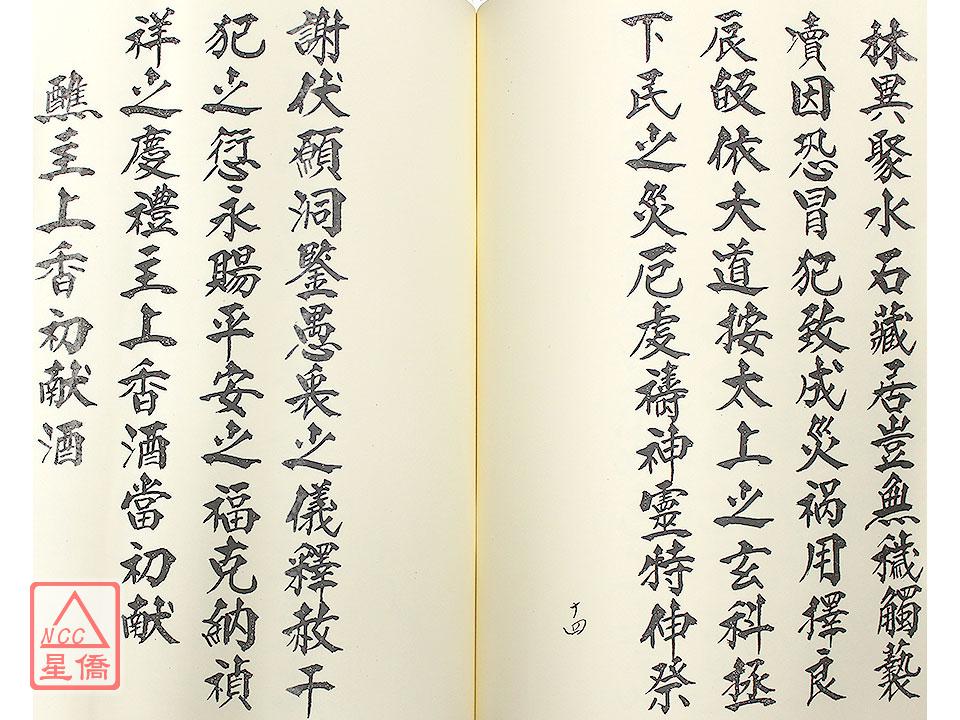 林異聚水石藏居豈無穢觸褻
瀆因恐冒犯致成災禍用擇良
辰皈依大道按太上之玄科拯
下民之災厄虔禱神靈特伸祭
十四
謝伏願洞鑒愚衷之儀釋赦干
犯之愆永賜平安之福克納禎
祥之慶禮主上香酒當初献
醮主上香初献酒
NCC
星僑